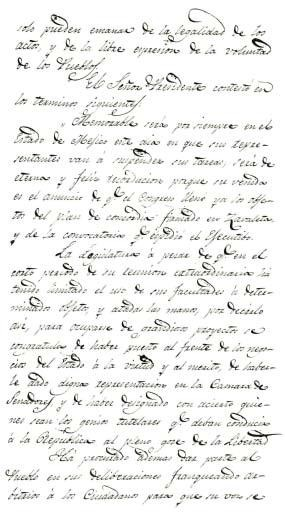 solo pueden emanar de la legalidad de los
actos, y de la libre expresion de la voluntad
de los Pueblos.
El Señor Presidente contestó en
los terminos siguientes.
"Memorable será por siempre en el
Estado de Mejico este dia en que sus repre-
sentantes van á suspender sus tareas; será de
eterna y feliz recordacion porque su venida
es el anuncio de q.e el Congreso lleno ya los obje-
tos del plan de concordia firmado en Zavaleta
y de la convocatoria q.e espidio el Ejecutivo.
La Legislatura á pesar de q.e en el
corto periodo de su reunion extraordinaria há
tenido limitado el uso de sus facultades á deter-
minados objetos, y atadas las manos, por decirlo
asi, para ocuparse de grandiosos proyectos se
congratula de haber puesto al frente de los nego-
cios del Estado á la virtud y al merito, de haber-
le dado digna representacion en la Camara de
Senadores, y de haber designado con acierto quie-
nes sean los genios tutelares q.e deban conducir
á la Republica al pleno goce de la libertad.
Há procurado ademas dar parte al
Pueblo en sus deliberaciones franqueando ar-
bitrios á los Ciudadanos para que su voz se